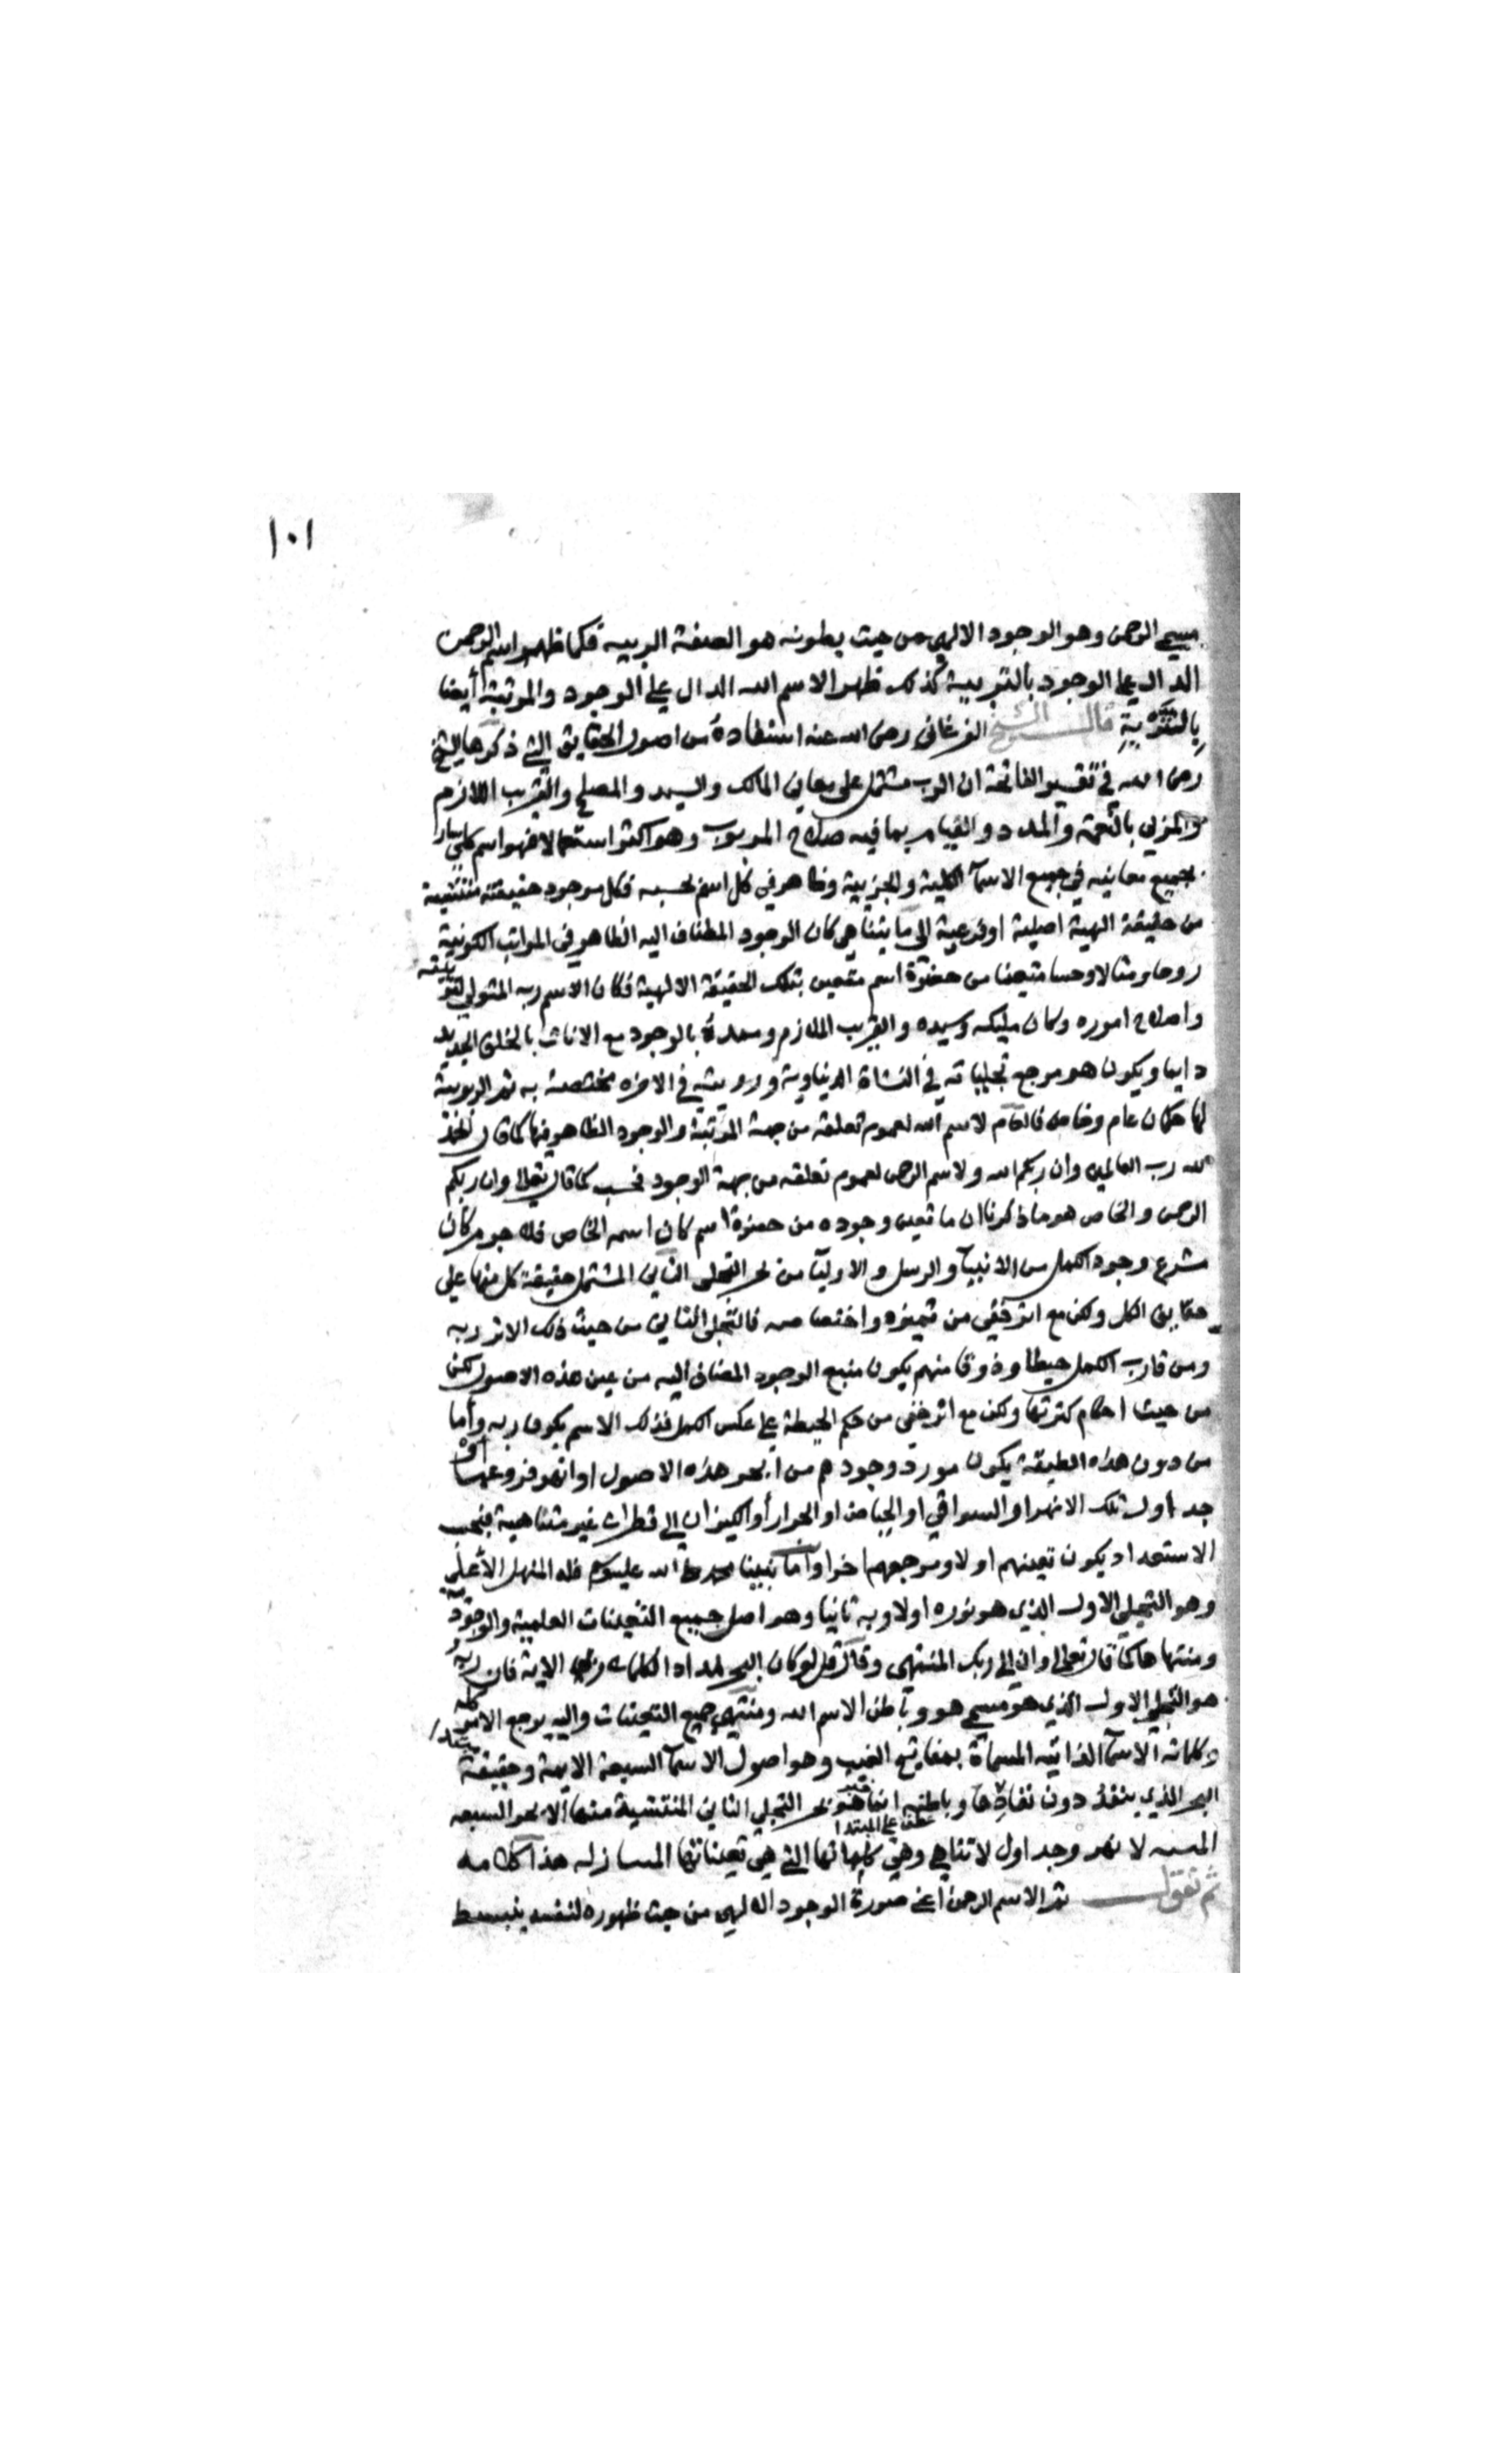 ١٠١
مسمى الرحمن وهو الوجود الالهى من حيث بطونه هو الصفة الربيه فكما ظهر اسم الرحمن
الدال على الوجود بالتربية كذلك ظهر الاسم الله الدال على الوجود والمرتبة أيضا
بالتربية قال الشيخ الفرغانى رضى الله عنه استفادة من اصول الحقايق التي ذكرها الشيخ
رضى الله في تفسير الفاتحة ان الرب مشتمل على معاني المالك والسيد والمصلح والقريب اللازم
والمربي بالنعمة والمدد والقيام بما فيه صلاح المربوب وهو اكثر استعمالا فهو اسم كلي سار
بجميع معانيه في جميع الاسمآ الكلية والجزيية وظاهر في كل اسم بحسبه فكل موجود حقيقته منتشية
من حقيقة الهية اصلية او فرعية الى ما يتناهى كان الوجود المضاف اليه الظاهر في المراتب الكونية
روحا ومثالا وحسا متعينا من حضرة اسم متعين بتلك الحقيقة الالهية فكان الاسم ربه المتولي لتربيته
واصلاح اموره وكان مليكه وسيده والقريب الملازم وممدة بالوجود مع الانات بالخلق الجديد
دايما ويكون هو مرجع تجلياته في النشاة الدنياوية ورويته في الاخره مختصة به ثم الربوبية
لها حكمان عام وخاص فالعام لاسم الله لعموم تعلقه من جهة المرتبة والوجود الظاهر فيها كما قال الحمد
لله رب العالمين وان ربكم الله ولاسم الرحمن لعموم تعلقه من جهة الوجود فحسب كما قال تعالى وان ربكم
الرحمن والخاص هو ما ذكرنا ان ما تعين وجوده من حضرة اسم كان اسمه الخاص فلا جرم كان
مشرع وجود الكمل من الانبيآ والرسل والاوليآ من بحر التجلى الثاني المشتمل حقيقة كل منها على
حقايق الكل ولكن مع اثر خفي من تميزه واختصاصه فالتجلى الثاني من حيث ذلك الاثر ربه
ومن قارب الكمل حيطا وذوقا منهم يكون منبع الوجود المضاف اليه من عين هذه الاصول لكن
من حيث احكام كثرتها ولكن مع اثر خفى من حكم الحيطة على عكس الكمل فذلك الاسم يكون ربه وأما
من دون هذه الطبقة يكون مورد وجودهم من ابحر هذه الاصول او انهر فروعها او
جداول تلك الانهر او السواقي او الحياض او الجرار أو الكيزان الى قطرات غير متناهية فبحسب
الاستعداد يكون تعينهم اولا ومرجعهم اخرا وأما نبينا محمد صلى الله عليه وسلم فله المنهل الأعلى
وهو التجلي الاول الذي هو نوره اولا وبه ثانيا وهو اصل جميع التعينات العلمية والوجودية
ومنتهاها كما قال تعالى وان الى ربك المنتهى وقال قل لو كان البحر مدادا لكلمات ربى الاية فان ربه
هو التجلي الاول الذي هو مسمى هو وباطن الاسم الله ومنتهى جميع التعينات واليه يرجع الامر كله
وكلماته الاسمآ الذاتيه المسماة بمفاتيح الغيب وهو اصول الاسمآ السبعة الايمة وحقيقة مبتدا
البحر الذي ينفد دون نفادها وباطنه انما هو خبر بحر التجلي الثاني المنتشية منها الابحر السبعه
عطف على المبتدا
لانهر وجداول لا تتناهى وهي كلماتها التي هي تعيناتها هذا كلامه
ثم نقول ثم الاسم الرحمن أعني صورة الوجود الالهى من حيث ظهوره لنفسه ينبسط